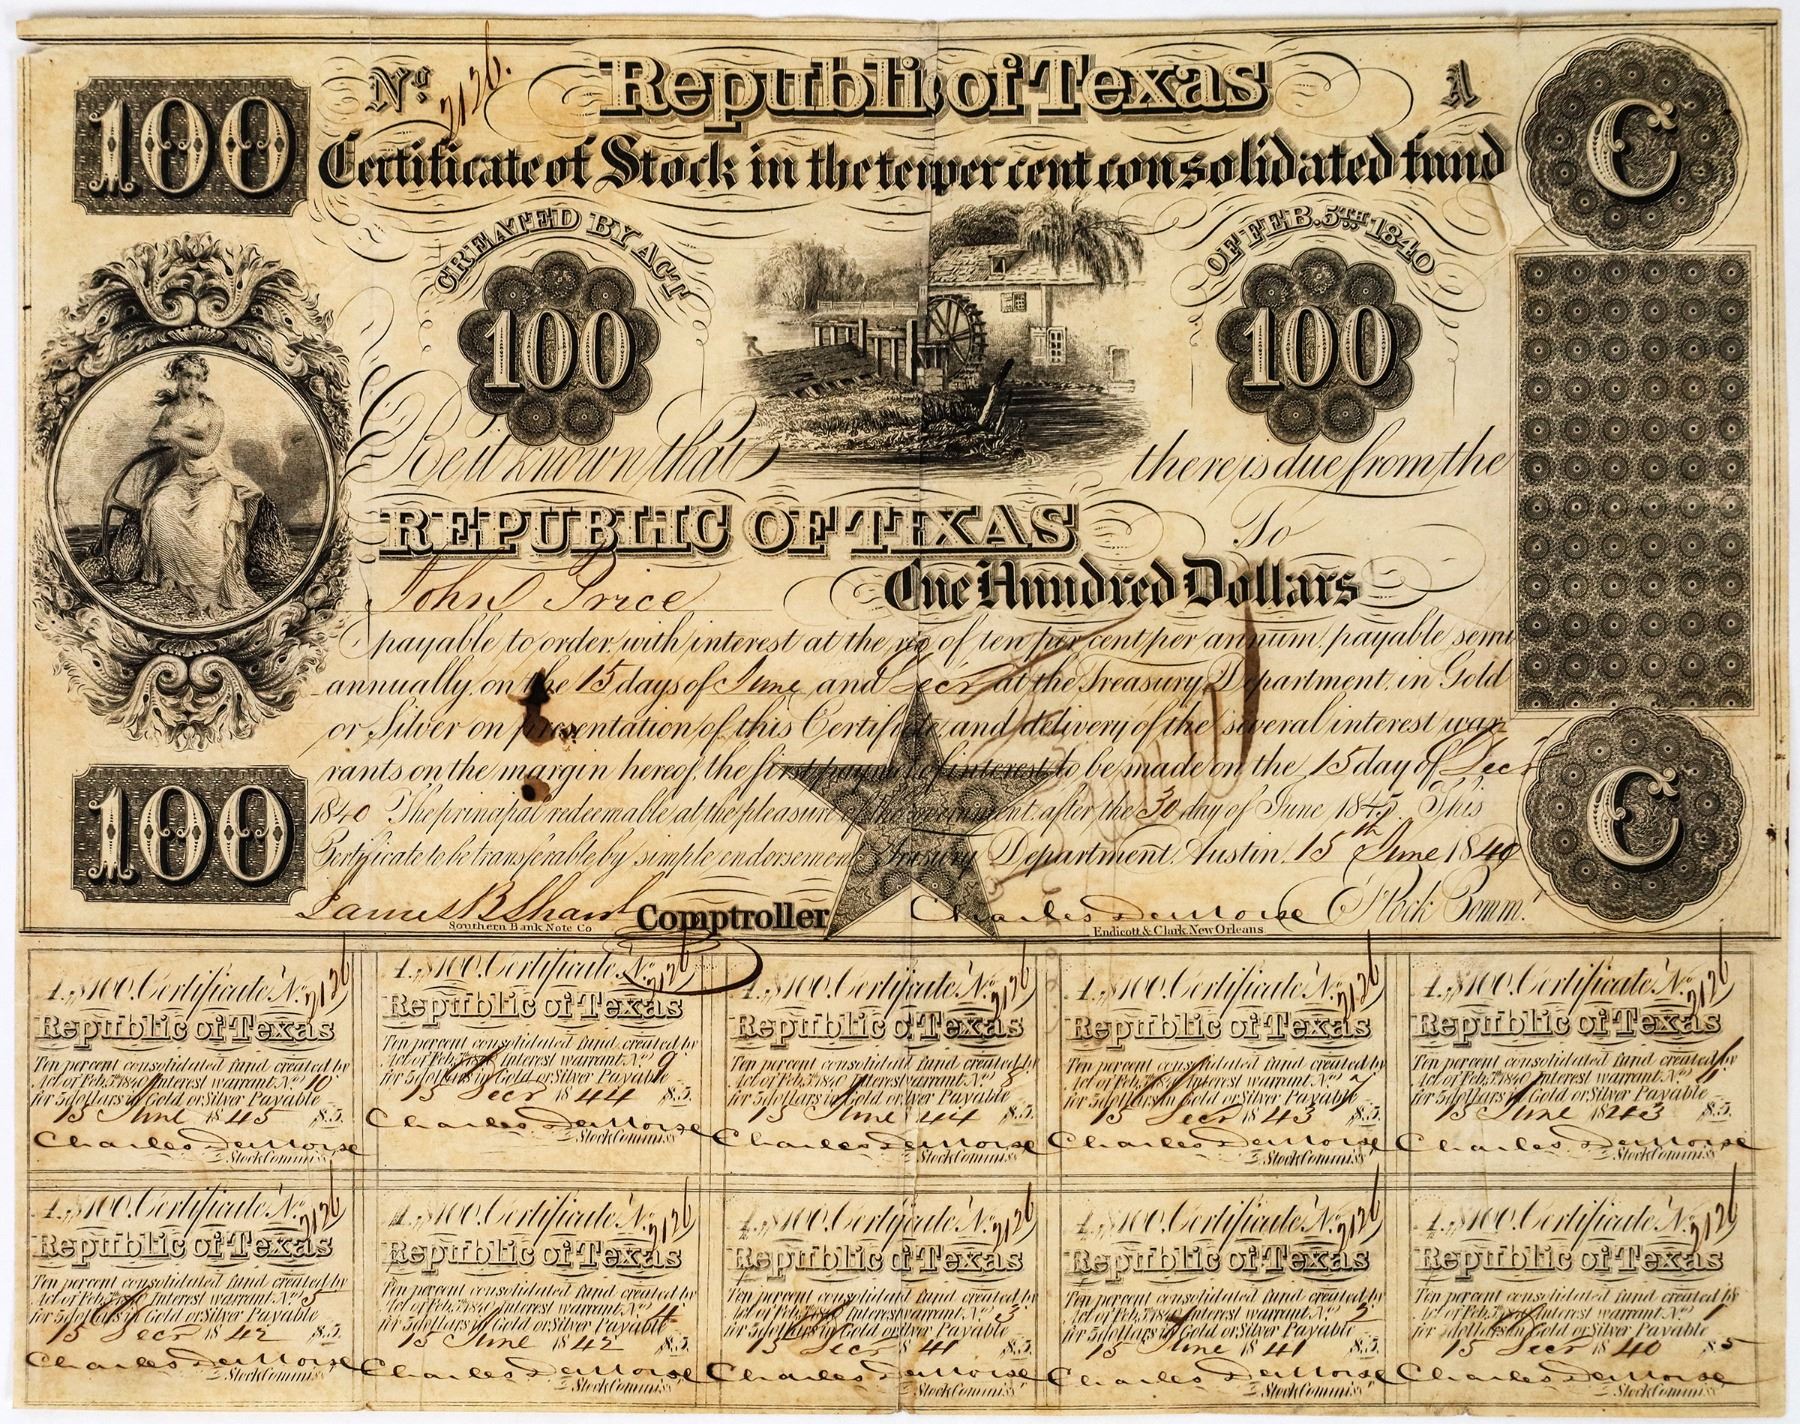 100 No. 2126. Republic of Texas A C
Certificate of Stock in the ten per cent consolidated fund
CREATED BY ACT OF FEB. 5TH 1840
100 100
Be it known that there is due from the
REPUBLIC OF TEXAS To
John Price One Hundred Dollars
payable to order, with interest at the rate of ten per cent per annum, payable semi
annually, on the 15 days of June and Decr at the Treasury Department, in Gold
or Silver on presentation of this Certificate, and delivery of the several interest war-
rants on the margin hereof, the first payment of interest to be made on the 15 day of Decr
1840 The principal redeemable at the pleasure of the government after the 30 day of June 1845. This
Certificate to be transferable by simple endorsement Treasury Department, Austin, 15th June 1840
100 C
James B Shaw Comptroller Charles DeMorse Stock Comm.r
Southern Bank Note Co Endicott & Clark, New Orleans
A. $100. Certificate No. 2126
Republic of Texas
Ten per cent consolidated fund created by
Act of Feb. 5th 1840 Interest warrant No. 10
for 5 dollars in Gold or Silver Payable
15 June 1845 $5.
Charles DeMorse
Stock Commiss
A. $100. Certificate No. 2126
Republic of Texas
Ten per cent consolidated fund created by
Act of Feb. 5th 1840 Interest warrant No. 9
for 5 dollars in Gold or Silver Payable
15 Decr 1844 $5.
Charles DeMorse
Stock Commiss
A. $100. Certificate No. 2126
Republic of Texas
Ten per cent consolidated fund created by
Act of Feb. 5th 1840 Interest warrant No.
for 5 dollars in Gold or Silver Payable
15 June 44 $5.
Charles DeMorse
Stock Commiss
A. $100. Certificate No. 2126
Republic of Texas
Ten per cent consolidated fund created by
Act of Feb. 5th 1840 Interest warrant No. 7
for 5 dollars in Gold or Silver Payable
15 Decr 1843 $5.
Charles DeMorse
Stock Commiss
A. $100. Certificate No. 2126
Republic of Texas
Ten per cent consolidated fund created by
Act of Feb. 5th 1840 Interest warrant No. 6
for 5 dollars in Gold or Silver Payable
15 June 1843 $5.
Charles DeMorse
Stock Commiss
A. $100. Certificate No. 2126
Republic of Texas
Ten per cent consolidated fund created by
Act of Feb. 5th 1840 Interest warrant No. 5
for 5 dollars in Gold or Silver Payable
15 Decr 1842 $5.
Charles DeMorse
Stock Commiss
A. $100. Certificate No. 2126
Republic of Texas
Ten per cent consolidated fund created by
Act of Feb. 5th 1840 Interest warrant No. 4
for 5 dollars in Gold or Silver Payable
15 June 1842 $5.
Charles DeMorse
Stock Commiss
A. $100. Certificate No. 2126
Republic of Texas
Ten per cent consolidated fund created by
Act of Feb. 5th 1840 Interest warrant No. 3
for 5 dollars in Gold or Silver Payable
15 Decr 41 $5.
Charles DeMorse
Stock Commiss
A. $100. Certificate No. 2126
Republic of Texas
Ten per cent consolidated fund created by
Act of Feb. 5th 1840 Interest warrant No. 2
for 5 dollars in Gold or Silver Payable
15 June 1841 $5.
Charles DeMorse
Stock Commiss
A. $100. Certificate No. 2126
Republic of Texas
Ten per cent consolidated fund created by
Act of Feb. 5th 1840 Interest warrant No. 1
for 5 dollars in Gold or Silver Payable
15 Decr 1840 $5
Charles DeMorse
Stock Commiss